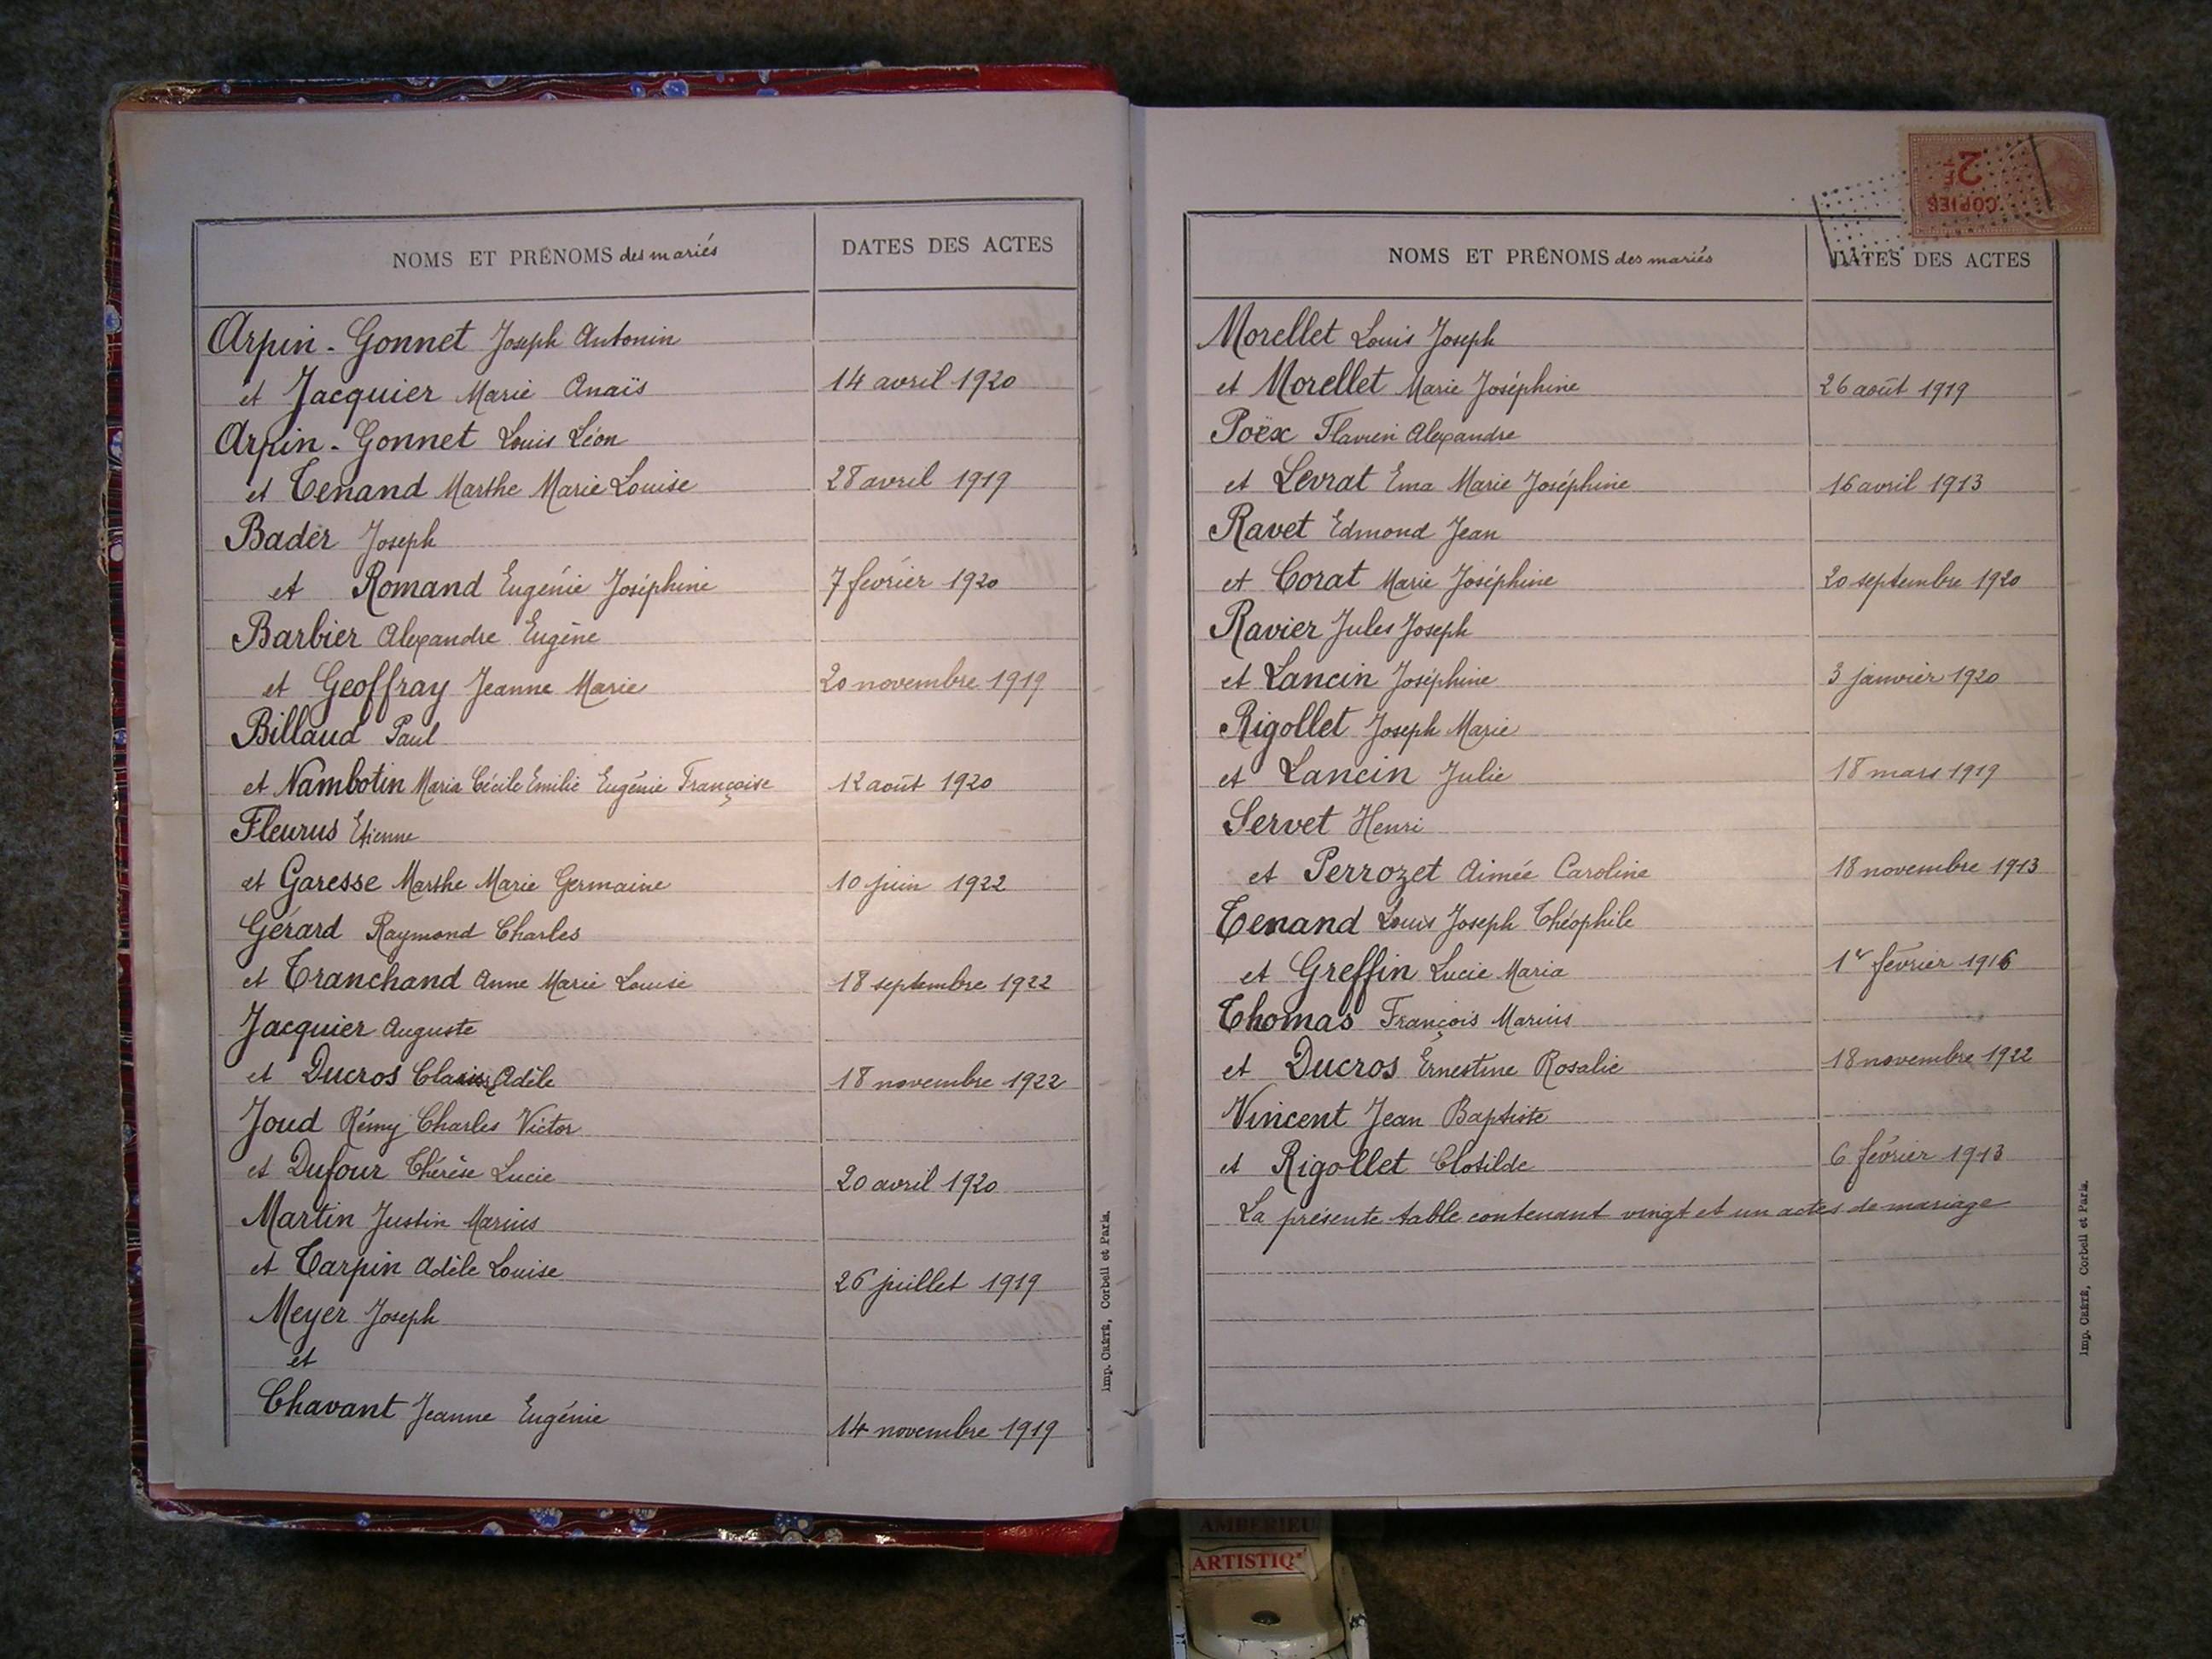 NOMS ET PRÉNOMS des mariés DATES DES ACTES
Arpin-Gonnet Joseph Antonin
et Jacquier Marie Anaïs 14 avril 1920
Arpin-Gonnet Louis Léon
et Tenand Marthe Marie Louise 28 avril 1919
Bader Joseph
et Romand Eugénie Joséphine 7 février 1920
Barbier Alexandre Eugène
et Geoffray Jeanne Marie 20 novembre 1919
Billaud Paul
et Nambotin Maria Cécile Emilie Eugénie Françoise 12 août 1920
Fleurus Etienne
et Garesse Marthe Marie Germaine 10 juin 1922
Gérard Raymond Charles
et Tranchand Anne Marie Louise 18 septembre 1922
Jacquier Auguste
et Ducros Adèle 18 novembre 1922
Joud Rémy Charles Victor
et Dufour Thérèse Lucie 20 avril 1920
Martin Justin Marius
et Tarpin Adèle Louise 26 juillet 1919
Meyer Joseph
et
Chavant Jeanne Eugénie 14 novembre 1919
Imp. CRÉTÉ, Corbeil et Paris.
COPIES
2F
NOMS ET PRÉNOMS des mariés DATES DES ACTES
Morellet Louis Joseph
et Morellet Marie Joséphine 26 août 1919
Poëx Flavien Alexandre
et Levrat Ema Marie Joséphine 16 avril 1913
Ravet Edmond Jean
et Corat Marie Joséphine 20 septembre 1920
Ravier Jules Joseph
et Lancin Joséphine 3 janvier 1920
Rigollet Joseph Marie
et Lancin Julie 18 mars 1919
Servet Henri
et Perrozet Aimée Caroline 18 novembre 1913
Tenand Louis Joseph Théophile
et Greffin Lucie Maria 1er février 1916
Thomas François Marius
et Ducros Ernestine Rosalie 18 novembre 1922
Vincent Jean Baptiste
et Rigollet Clotilde 6 février 1913
La présente table contenant vingt et un actes de mariage
Imp. CRÉTÉ, Corbeil et Paris.
AMBERIEU
ARTISTIQ